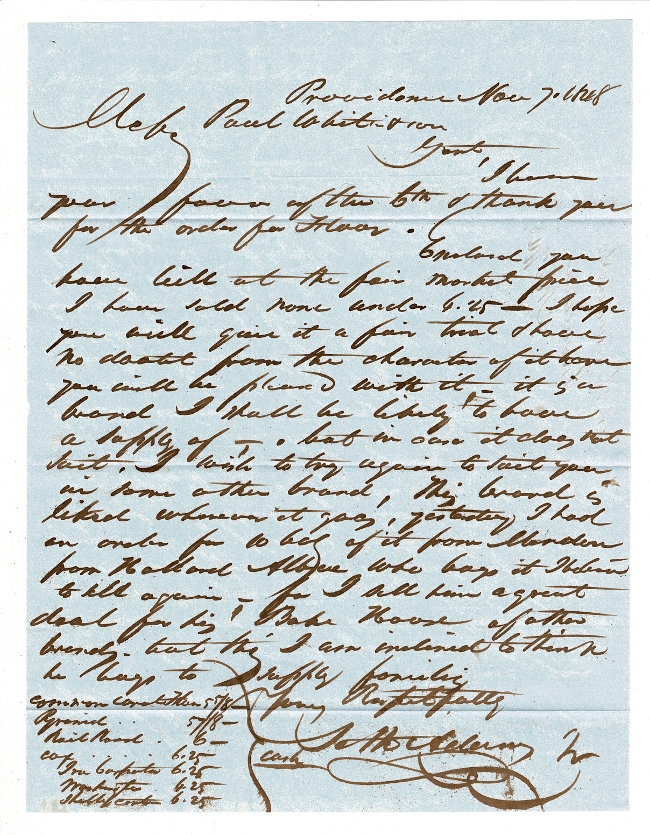 Providence Nov 7. 1848
Messrs Paul Whitin & Son
Gent
I have
your favor of the 6th & thank you
for the order for Flour.
Enclosed you
have bill at the fair market price
I have sold none under 6.25 — I hope
you will give it a fair trial & have
no doubt from the character of it here
you will be pleased with it — it is a
brand I shall be likely to have
a supply of — . but in case it does not
suit, I wish to try again to suit you
in some other brand, This brand is
liked wherever it goes, yesterday I had
an order for 10 bbl of it from Mendon
from Holland Albee who buys it I believe
to sell again — for I sell him a great
deal for his Bake House of other
brands — but this I am inclined to think
he buys to supply families
Yours Respectfully
Seth Adams Jr
common 57/8 —
Pyramid . . 57/8 —
Rail Road . 6 —
6.25
Ira 6.25
Washington 6.25
6.25
cash